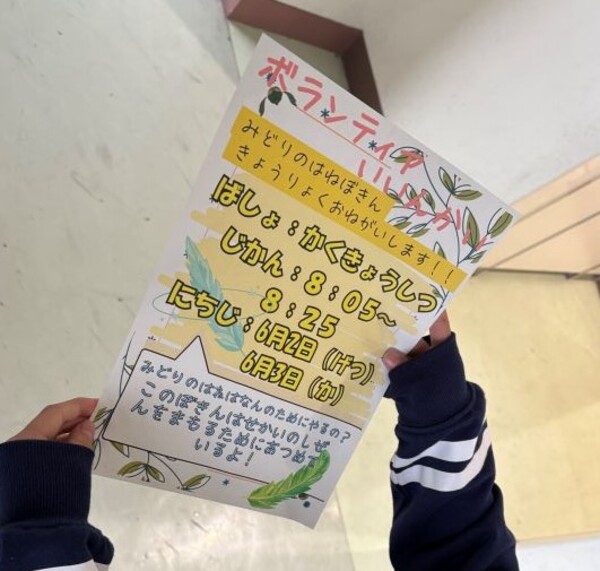 ボランティア
いいんかい
みどりのはねぼきん
きょうりょくおねがいします!!
ばしょ:かくきょうしつ
じかん:8:05~
8:25
にちじ:6月2日(げつ)
6月3日(か)
みどりのはねはなんのためにやるの?
このぼきんはせかいのしぜ
んをまもるためにあつめて
いるよ!